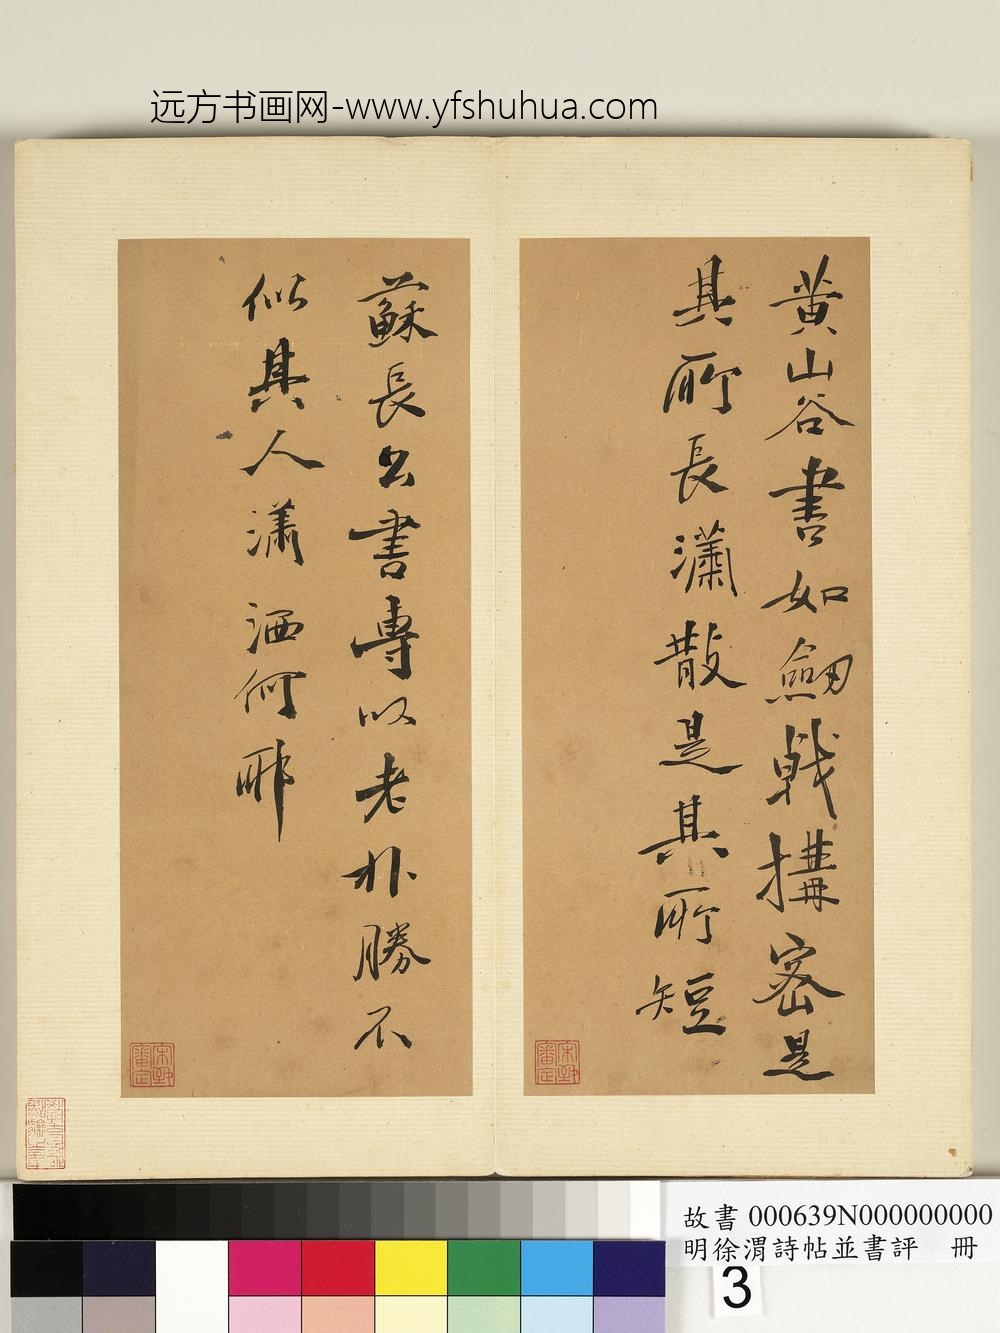 远方书画网-www.yfshuhua.com
黄山谷書如劒戟搆宻是
其所長瀟散是其所短
蘇長公書専以老朴勝不
似其人瀟洒何耶
宋犖審定
宋犖審定
故書 000639N000000000
明徐渭詩帖並書評 冊
3